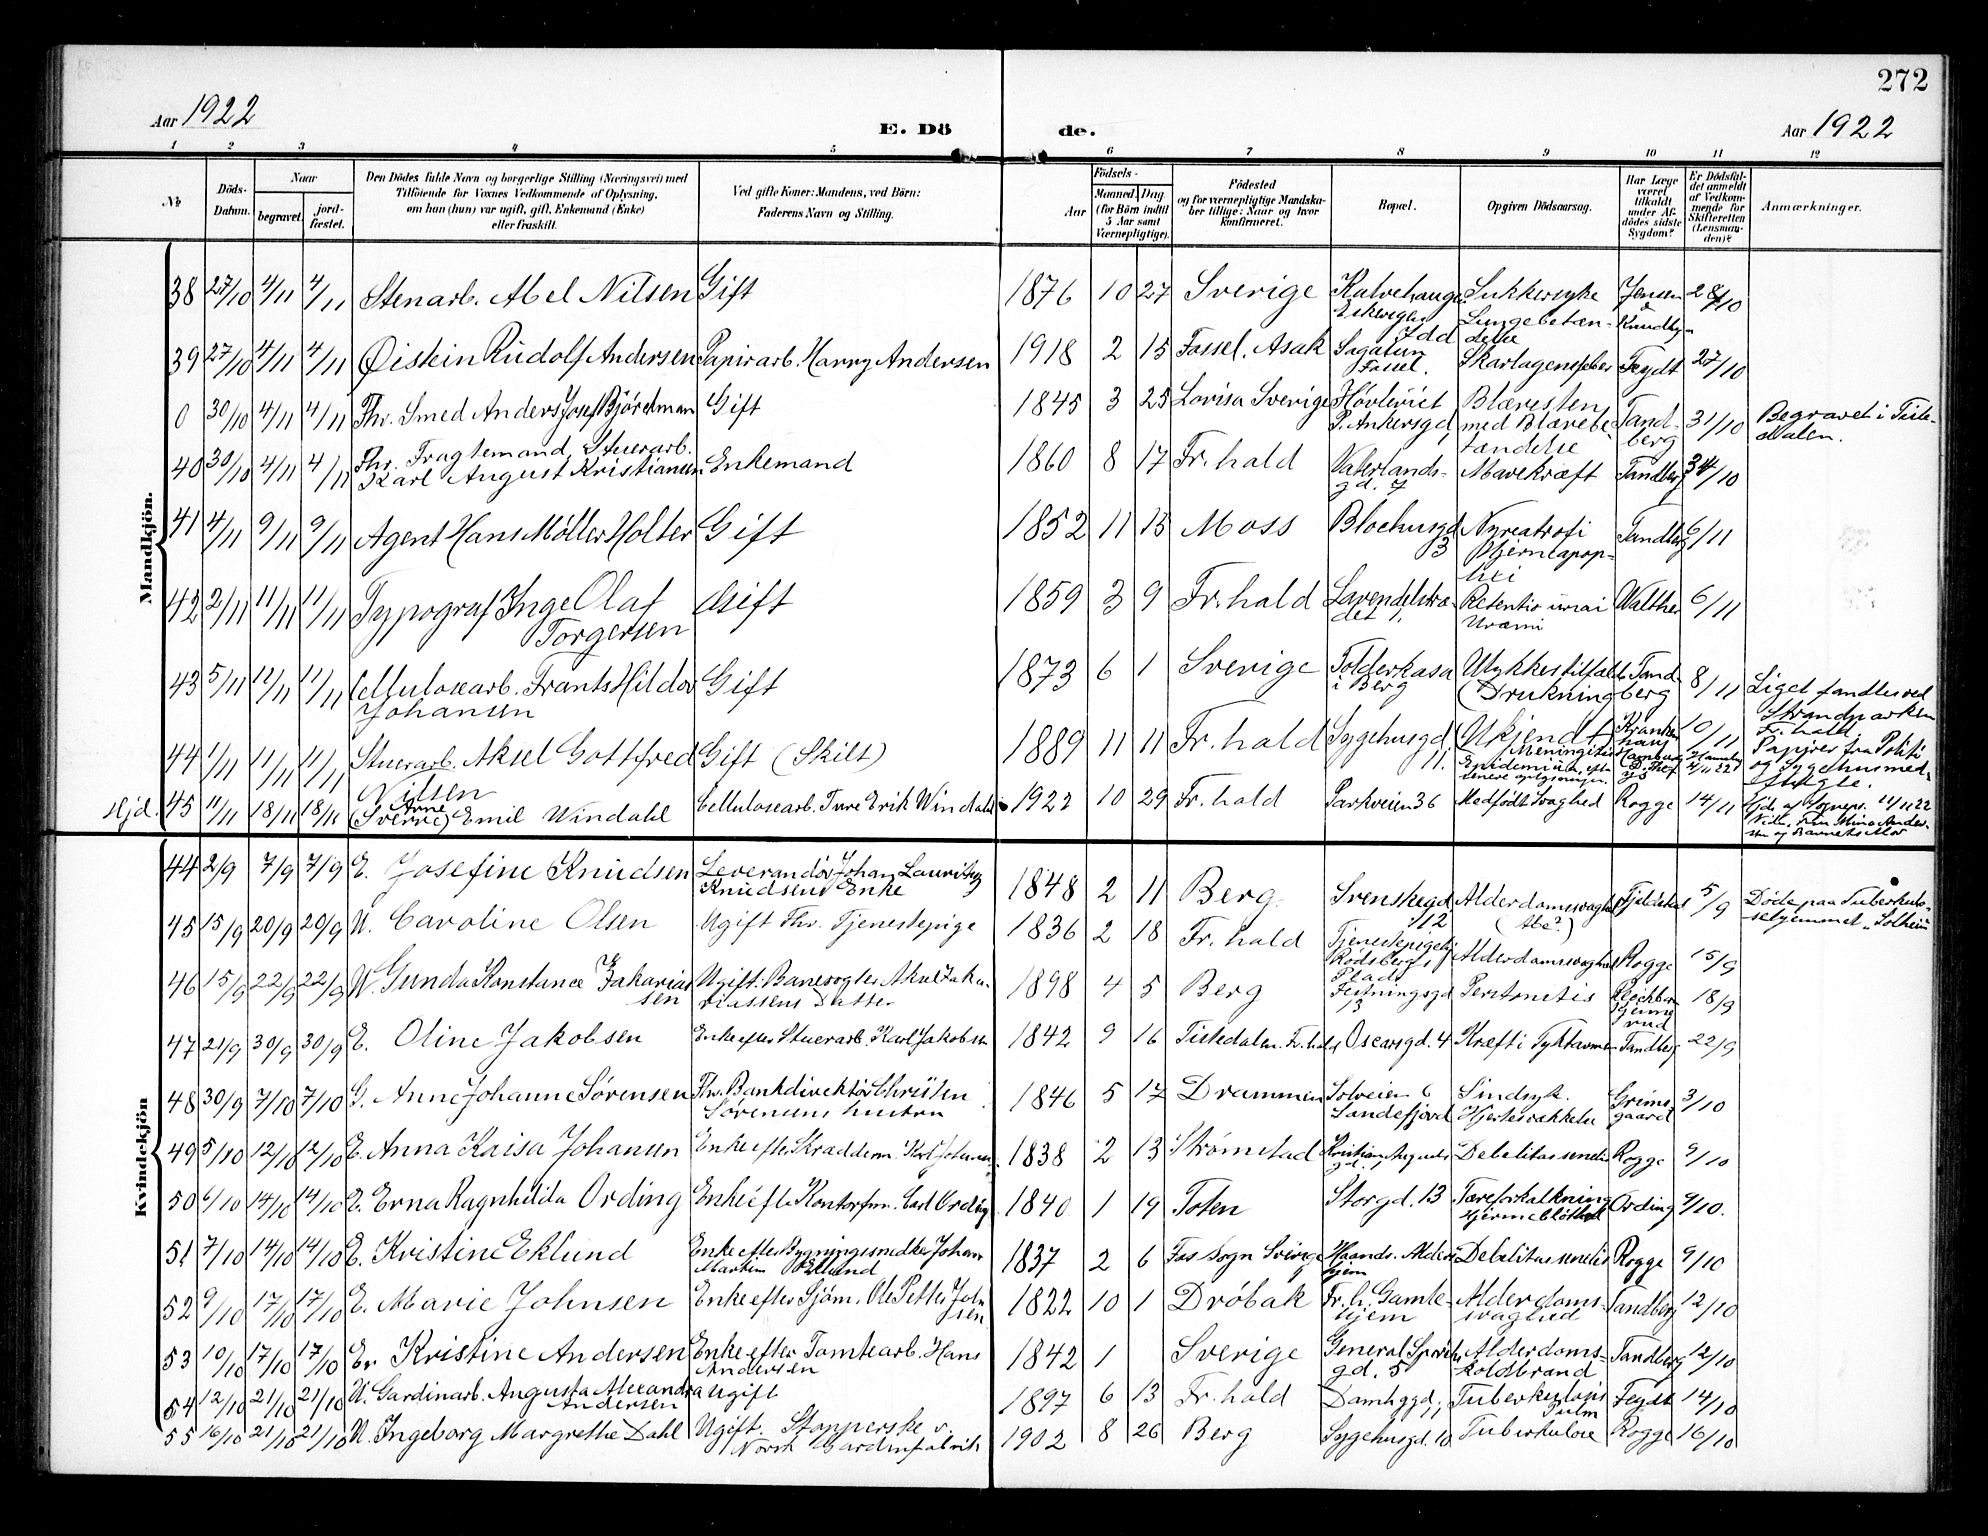 272
Aar 1922
E. Dö
de.
Aar 1922
1 2 3 4 5 6 7 8 9 10 11 12
No
Döds-
Datum.
Naar
begravet.
jord-
fæstet.
Den Dödes fulde Navn og borgerlige Stilling (Næringsvei) med
Tilföiende for Voxnes Vedkommende af Oplysning,
om han (hun) var ugift, gift, Enkemand (Enke)
eller fraskilt.
Ved gifte Koner: Mandens, ved Börn:
Faderens Navn og Stilling.
Födsels-
Aar
Maaned. Dag.
(for Börn indtil
5 Aar samt
Værnepligtige).
Födested
og for værnepligtige Mandska-
ber tillige: Naar og hvor
konfirmeret.
Bopæl.
Opgiven Dödsaarsag.
Har Læge
været
tilkaldt
under Af-
dödes sidste
Sygdom?
Er Dödsfal-
det anmeldt
af Vedkom-
mende for
Skifteretten
(Lensman-
den)?
Anmærkninger.
Mandkjön.
38 27/10 4/11 4/11 Stenarb. Abel Nilsen Gift 1876 10 27 Sverige Sukkersyke Jensen 28/10
Lungebetæn-
Idd delse
39 27/10 4/11 4/11 Øistein Rudolf Andersen Papirarb. Harry Andersen 1918 2 15 Fossel. Asak Skarlagensfeber Feydt 27/10
Fossel.
0 30/10 4/11 4/11 Fhv. Smed Anders Josef Björkman Gift 1845 3 25 Lovisa Sverige Blæresten Tand-
berg 31/10 Begravet i Tiste-
dalen.
P. Ankersgd. med Blærebe-
tændelse
40 30/10 4/11 4/11 Fhv. Fragtemand, Stuerarb.
Karl August Kristiansen Enkemand 1860 8 17 Fr.hald Vaterlands-
gd. 7 Mavekræft Tandberg /10
41 4/11 9/11 9/11 Agent Hans Møller Holter Gift 1852 11 15 Moss Blochusgd
3 Nyreatrofi
Hjerneapop-
lexi Tandberg 6/11
42 2/11 11/11 11/11 Typograf Inge Olaf
Torgersen Gift 1859 3 9 Fr.hald Lavendelstræ-
det 1. Retentio urinæ
Uræmi Walther 6/11
43 5/11 12/11 11/11 Cellulosearb. Frants Hildor
Johansen Gift 1873 6 1 Sverige Tolderkasa
i Berg Ulykkestilfælde
(Drukning Tand-
berg 8/11 Liget fandtes ved
Strandparken
Fr.hald
44 1/11 11/11 11/11 Stuerarb. Aksel Gottfred
Nilsen Gift (Skilt) 1889 11 11 Fr.hald Sygehusgd
11. Ukjendt
Meningitis
Hamburg 10/11 Papirer fra Politi
og Sygehus med-
følgte.
Hjd. 45 11/11 18/11 18/11 Arne
(Sverre) Emil Windahl Cellulosearb. Ture Erik Windahl 1922 10 29 Fr.hald Parkveien 36 Medfödt Svaghed Rogge 14/11
Kvindekjön
44 2/9 7/9 7/9 E. Josefine Knudsen Leverandör Johan Lauritz
Knudsens Enke 1848 2 11 Berg Svenskegd
112 Alderdomssvaghed 5/9 Döde paa Tuberkulo-
sehjemmet „Solheim"
45 15/9 20/9 20/9 U. Caroline Olsen Ugift Fhv. Tjenestepige 1836 2 18 Fr.hald Alderdomssvaghed Rogge 15/9
46 15/9 22/9 22/9 U. Gunda Konstance Zakarias-
sen Ugift. Banevogter Zaka-
riassens Datter 1898 4 5 Berg Festningsgd
3 Peritonitis 18/9
47 21/9 30/9 30/9 E. Oline Jakobsen Enke efter Stuerarb. Karl Jakobsen 1842 9 16 Tistedalen. Fr.hald Oscarsgd. 4 Kræft i Tyktarmen Tandberg 22/9
48 30/9 7/10 7/10 G. Anne Johanne Sørensen Fhv. Bankdirektör Christen
Sørensens hustru 1846 5 17 Drammen Solveien 6
Sandefjord Sindsyk.
Hjertesvækkelse Grims-
gaard 3/10
49 5/10 12/10 12/10 E. Anna Kaisa Johansen Enke efter Skrædderm. Karl Johansen 1838 2 13 Strømstad Kristian Augusts
gd. Debilitas senilis Rogge 9/10
50 6/10 14/10 14/10 E. Erna Ragnhilda Ording Enke efter Kontorfm. Carl Ording 1840 1 19 Toten Storgd. 13 Ording 9/10.
51 7/10 14/10 14/10 E. Kristine Eklund Enke efter Bygningssnedker Johan
Martin Eklund 1837 2 6 Fos sogn Sverige Haandv. Alders-
hjem Debilitas senilis Rogge 9/10
52 9/10 17/10 17/10 E. Marie Johnsen Enke efter Sjöm. Ole Petter John-
sen 1822 10 1 Dröbak Fr.h. Gamle-
hjem Alderdoms-
svaghed Tandberg 12/10
53 10/10 17/10 17/10 E. Kristine Andersen Enke efter Tomtearb. Hans
Andersen 1842 1 Sverige
gd. 5 Alderdoms-
koldbrand Tandberg 12/10
54 12/10 21/10 21/10 U. Gardinarb. Augusta Alexandra
Andersen Ugift 1897 6 13 Fr.hald Tuberkulosis
Pulm Feydt 14/10
55 16/10 21/10 21/10 U. Ingeborg Margrethe Dahl Ugift. Stopperske v.
Norsk Gardinfabrik 1902 8 26 Berg Sygehusgd. 10 Tuberkulose Rogge 16/10